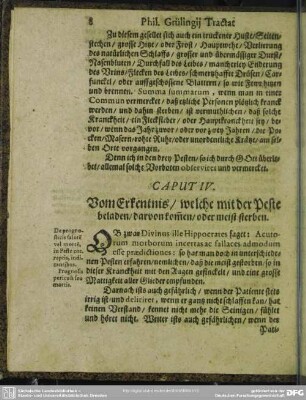 8 Phil. Grülingij Tractat
Zu diesem gesellet sich auch ein truckener Huste/ Seiten-
stechen/ grosse Hitze/ oder Frost/ Hauptwehe/ Verlierung
des natürlichen Schlaffs/ grosser und übermässiger Durst/
Nasenbluten/ Durchfall des Leibes/ mancherley Enderung
des Urins/ Flecken des Leibes/ schmertzhaffte Drüsen/ Car-
funckel/ oder auffgeschossene Blattern/ so wie Fewr hitzen
und brennen. Summa summarum, wenn man in einer
Commun vermercket/ daß etzliche Personen pläßlich kranck
werden/ und dahin sterben/ ist vermuthlichen/ daß solche
Kranckheit/ ein Fleckfieber/ oder Hauptkranckheit sey/ be-
vor/ wenn das Jahr zuvor/ oder vor zwey Jahren/ die Po-
cken/ Masern/ rothe Ruhr/ oder unordentliche Krätze/ am sel-
ben Orte vorgangen.
Denn ich in den drey Pesten/ so ich durch Gott überle-
bet/ allemal solche Vorboten observiret und vermercket.
CAPUT IV.
Vom Erkentnis/ welche mit der Peste
beladen/ darvon kommen/ oder meist sterben.
De progno-
sticis salutis
vel mortis,
in Peste cor-
reptis, indi-
cantibus.
Prognosis
periculosa
mortis.
OB zwar Divinus ille Hippocrates saget: Acuto-
rum morborum incertas ac fallaces admodum
esse prædictiones: so hat man doch in unterschiede-
nen Pesten erfahren/ nemlichen/ daß die meist gestorben/ so in
dieser Kranckheit mit den Augen gefünckelt/ und eine grosse
Mattigkeit aller Glieder empfunden.
Darnach ists auch gefährlich/ wenn der Patiente stets
irrig ist und deliriret, wenn er gantz nicht schlaffen kan/ hat
keinen Verstand/ kennet nicht mehr die Seinigen/ fühlet
und höret nicht. Weiter ists auch gefährlichen/ wenn der
Pati-